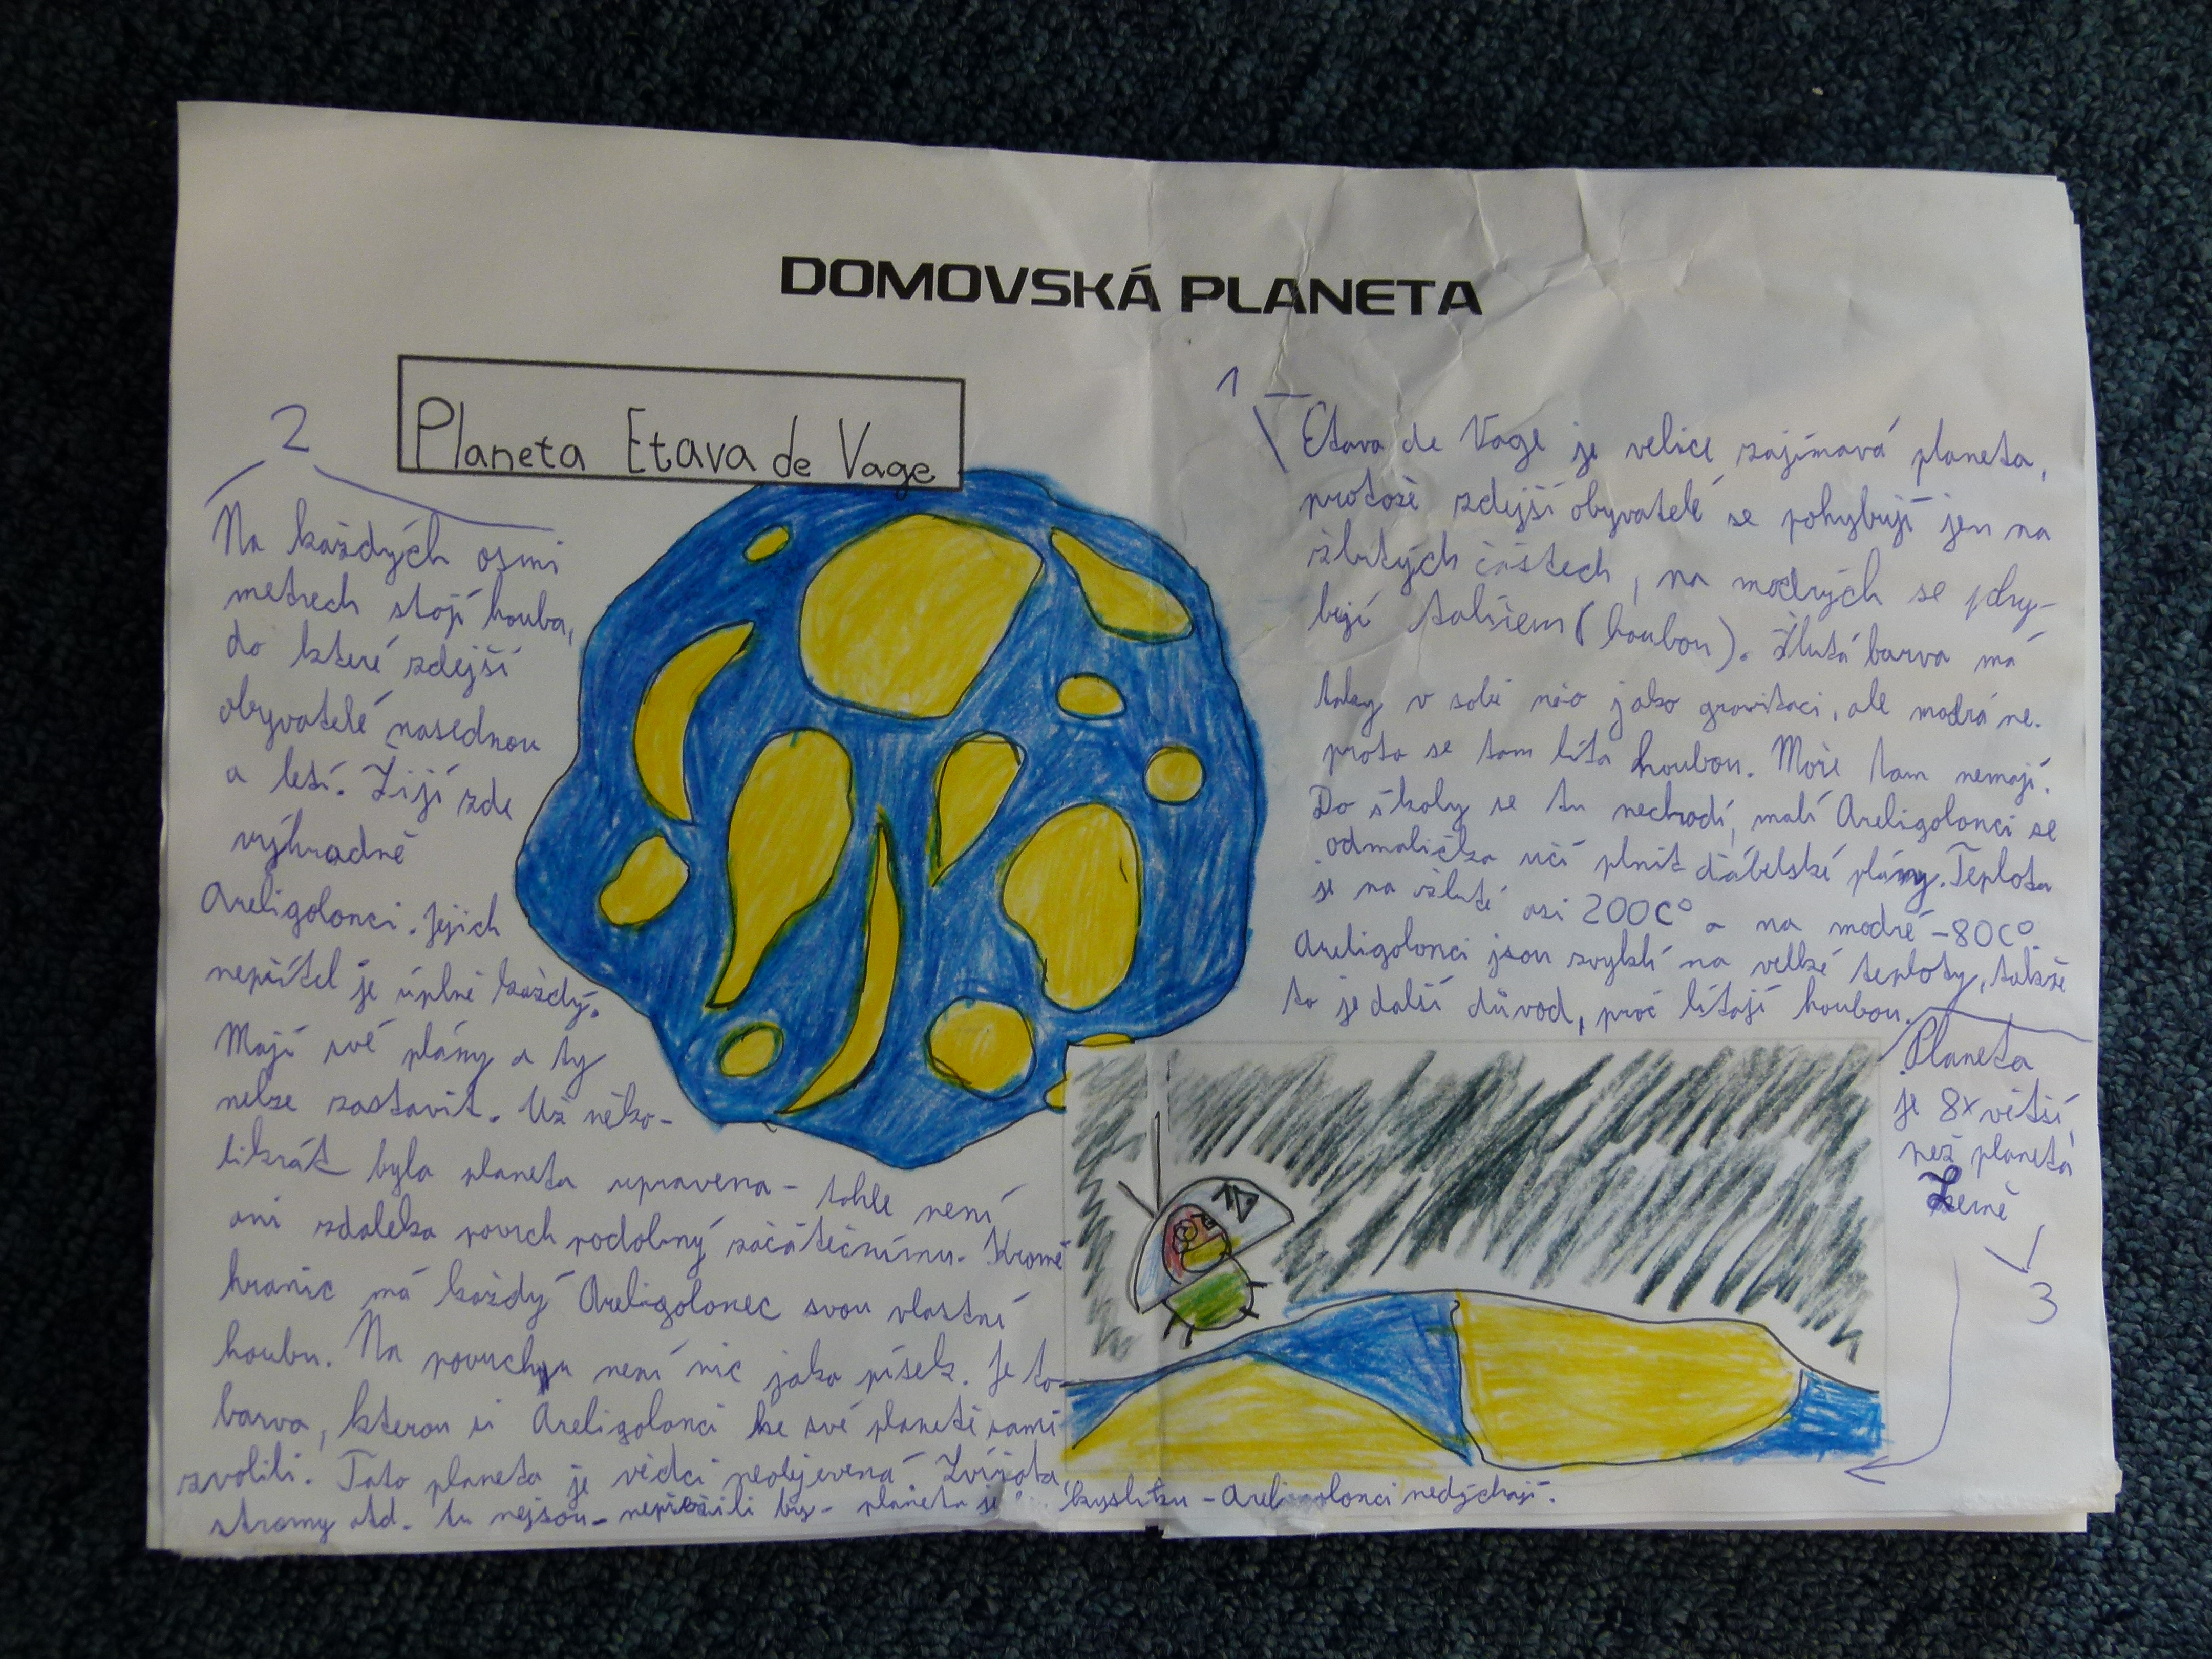 DOMOVSKÁ PLANETA
Planeta Etava de Vage
1
Etava de Vage je velice zajímavá planeta,
protože zdejší obyvatelé se pohybují jen na
žlutých částech, na modrých se pohy-
bují talířem (houbou). Žlutá barva má
taky v sobě něco jako gravitaci, ale modrá ne.
proto se tam lítá houbou. Moře tam nemají.
Do školy se tu nechodí, malí Areligolonci se
odmalička učí plnit ďábelské plány. Teplota
je na žluté asi 200C° a na modré -80C°
Areligolonci jsou zvyklí na velké teploty, takže
to je další důvod, proč lítají houbou.
2
Na každých osmi
metrech stojí houba,
do které zdejší
obyvatelé nasednou
a letí. Žijí zde
výhradně
Areligolonci. Jejich
nepřítel je úplně každý.
Mají své plány a ty
nelze zastavit. Už něko-
likrát byla planeta upravena - tohle není
ani zdaleka povrch podobný začátečnímu. Kromě
hranic má každý Areligolonec svou vlastní
houbu. Na povrchu není nic jako písek. Je to
barva, kterou si Areligolonci ke své planetě sami
zvolili. Tato planeta je vědci neobjevená. Zvířata,
stromy atd. tu nejsou - nepřežili by - planeta je kyslíku - Areligolonci nedýchají.
Planeta
je 8x větší,
než planeta
Země
3